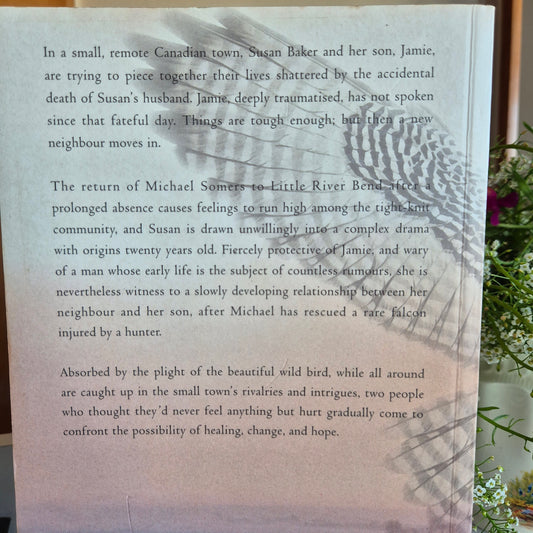 In a small, remote Canadian town, Susan Baker and her son, Jamie,
are trying to piece together their lives shattered by the accidental
death of Susan's husband. Jamie, deeply traumatised, has not spoken
since that fateful day. Things are tough enough; but then a new
neighbour moves in.
The return of Michael Somers to Little River Bend after a
prolonged absence causes feelings to run high among the tight-knit
community, and Susan is drawn unwillingly into a complex drama
with origins twenty years old. Fiercely protective of Jamie, and wary
of a man whose early life is the subject of countless rumours, she is
nevertheless witness to a slowly developing relationship between her
neighbour and her son, after Michael has rescued a rare falcon
injured by a hunter.
Absorbed by the plight of the beautiful wild bird, while all around
are caught up in the small town's rivalries and intrigues, two people
who thought they'd never feel anything but hurt gradually come to
confront the possibility of healing, change, and hope.